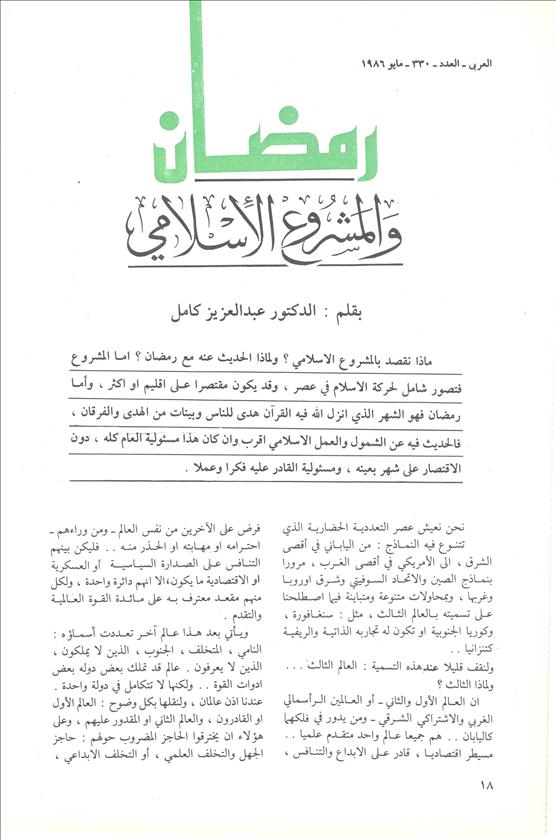 العربي - العدد - ٣٣٠ - مايو ١٩٨٦
رمضان
والمشروع الإسلامي
بقلم : الدكتور عبدالعزيز كامل
ماذا نقصد بالمشروع الاسلامي ؟ ولماذا الحديث عنه مع رمضان ؟ اما المشروع
فتصور شامل لحركة الاسلام في عصر ، وقد يكون مقتصرا على اقليم او اكثر ، وأما
رمضان فهو الشهر الذي انزل الله فيه القرآن هدى للناس وبينات من الهدى والفرقان ،
فالحديث فيه عن الشمول والعمل الاسلامي اقرب وان كان هذا مسئولية العام كله ، دون
الاقتصار على شهر بعينه ، ومسئولية القادر عليه فكرا وعملا .
نحن نعيش عصر التعددية الحضارية الذي
تتنوع فيه النماذج : من الياباني في أقصى
الشرق ، الى الأمريكي في أقصى الغرب ، مرورا
بنماذج الصين والاتحاد السوفيتي وشرق اوروبا
وغربها ، وبمحاولات متنوعة ومتباينة فيما اصطلحنا
على تسميته بالعالم الثالث ، مثل : سنغافورة ،
وكوريا الجنوبية او تكون له تجاربه الذاتية والريفية
كتنزانيا . .
ولنقف قليلا عند هذه التسمية : العالم الثالث . . .
ولماذا الثالث ؟
ان العالم الأول والثاني - أو العالمين الرأسمالي
الغربي والاشتراكي الشرقي - ومن يدور في فلكها
كاليابان . . هم جميعا عالم واحد متقدم علميا . .
مسيطر اقتصاديا ، قادر على الابداع والتنافس ،
فرض على الآخرين من نفس العالم - ومن وراءهم -
احترامه او مهابته او الحذر منه . . فليكن بينهم
التنافس على الصدارة السياسية أو العسكرية
او الاقتصادية ما يكون، الا انهم دائرة واحدة ، ولكل
منهم مقعد معترف به على مائدة القوة العالمية
والتقدم .
ويأتي بعد هذا عالم آخر تعددت أسماؤه :
النامي ، المتخلف ، الجنوب ، الذين لا يملكون ،
الذين لا يعرفون . عالم قد تملك بعض دوله بعض
ادوات القوة . . ولكنها لا تتكامل في دولة واحدة .
عندنا اذن عالمان ، ولنقلها بكل وضوح : العالم الأول
او القادرون ، والعالم الثاني او المقدور عليهم ، وعلى
هؤلاء ان يخترقوا الحاجز المضروب حولهم : حاجز
الجهل والتخلف العلمي ، أو التخلف الابداعي ،
١٨